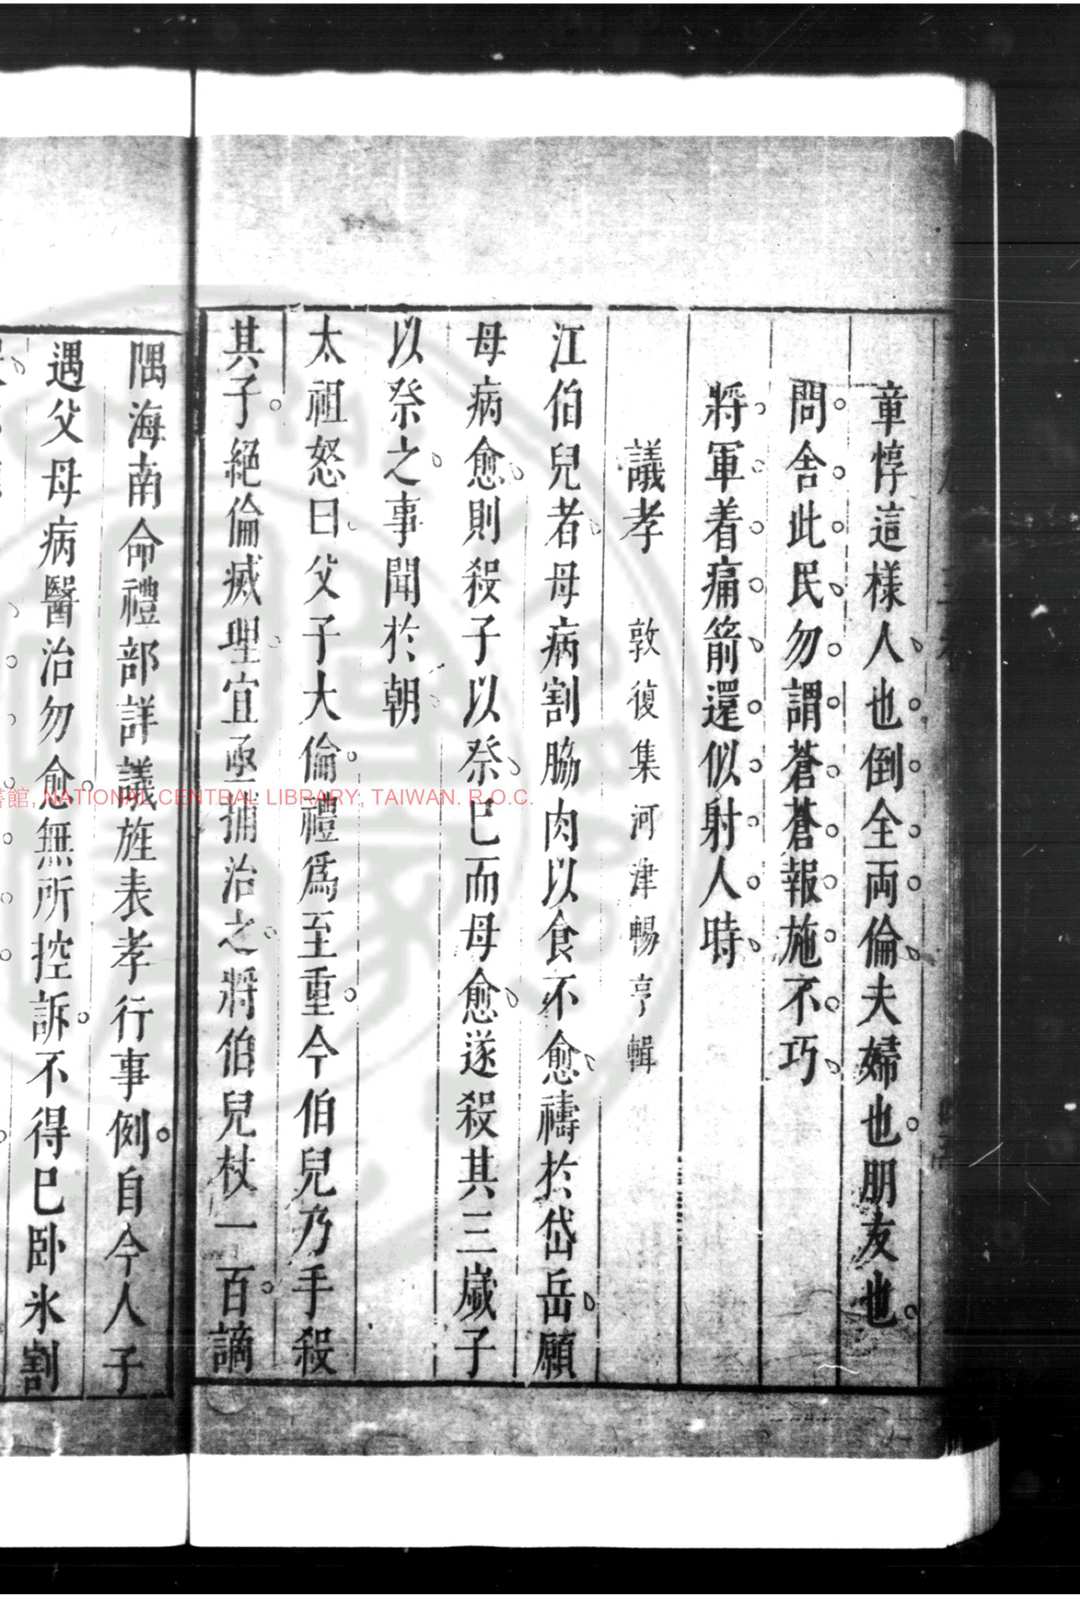 章惇這様人也倒全両倫夫婦也朋友也
問舍此民勿謂蒼蒼報施不巧
將軍着痛箭還似射人時
議孝 敦復集河津暢亨輯
江伯兒者母病割脇肉以食不愈禱於岱岳願
母病愈則殺子以祭巳而母愈遂殺其三歲子
以祭之事聞於朝
太祖怒曰父子大倫禮爲至重今伯兒乃手殺
其子絕倫滅理宜亟捕治之將伯兒杖一百謫
隅海南命禮部詳議旌表孝行事例自今人子
遇父母病醫治勿愈無所控訴不得巳卧氷割
書館, NATIONAL CENTRAL LIBRARY, TAIWAN. R.O.C.